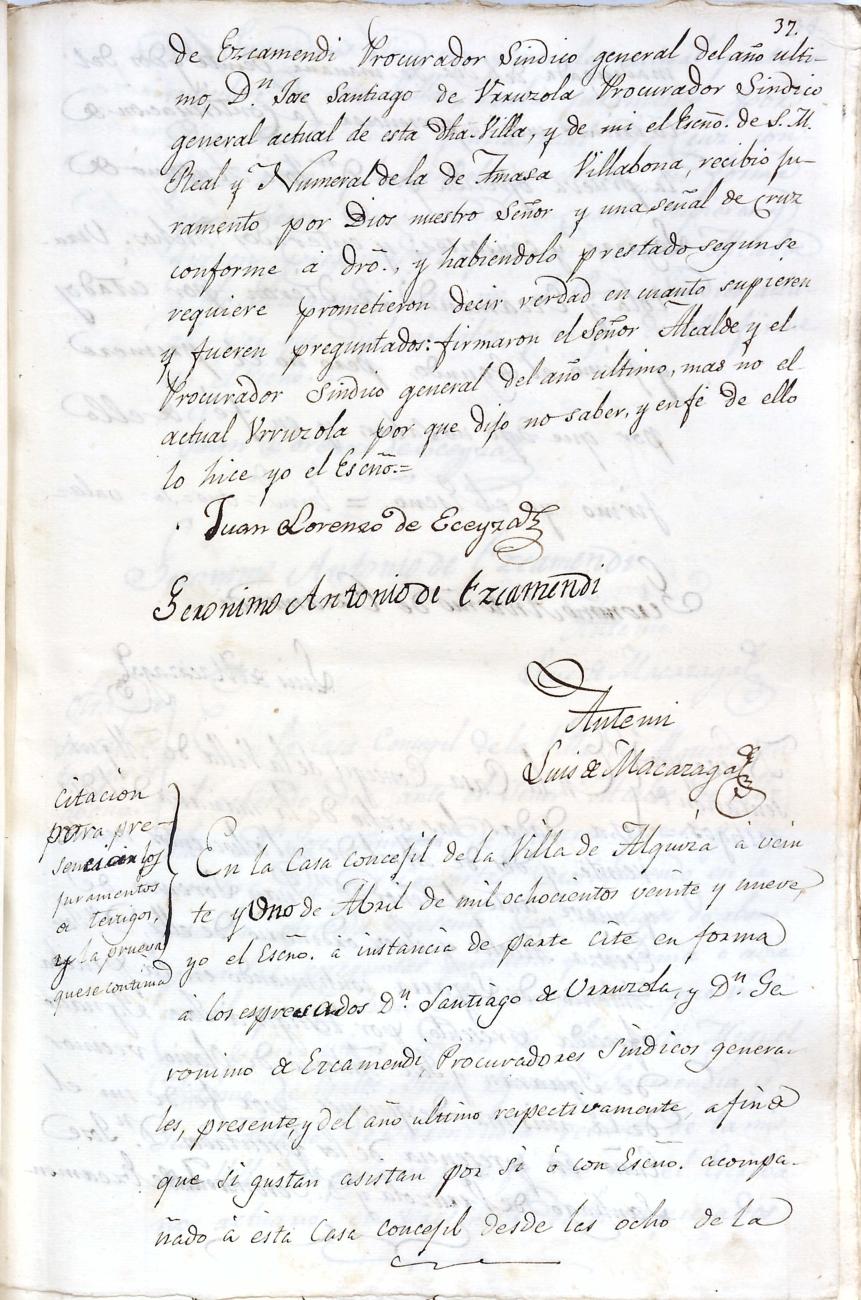 37.
de Ezcamendi Procurador Sindico general del año ulti-
mo, D.n Jose Santiago de Vrruzola Procurador Sindico
general actual de esta dha. Villa, y de mi el Escño. de S. M.
Real y Numeral de la de Amasa Villabona, recibio ju-
ramento por Dios nuestro Señor y una señal de Cruz
conforme á dro., y habiendolo prestado segun se
requiere prometieron decir verdad en cuanto supieren
y fueren preguntados: firmaron el Señor Alcalde y el
Procurador Sindico general del año ultimo, mas no el
actual Vrruzola por que dijo no saber, y en fé de ello
lo hice yo el Escño.=
Juan Lorenzo de Eceyza
Geronimo Antonio de Ezcamendi
Antemi
Luis de Macazaga
Citacion
para pre-
senciar los
juramentos
de testigos,
y la prueva
que se continua
En la Casa concejil de la Villa de Alquiza á vein
te y uno de Abril de mil ochocientos veinte y nueve,
yo el Escño. á instancia de parte cité en forma
á los espresados D.n Santiago de Urruzola, y D.n Ge
ronimo de Ezcamendi, Procuradores Sindicos genera-
les, presente, y del año ultimo respectivamente, afin de
que si gustan asistan por si ó con Escño. acompa-
ñado á esta Casa concejil desde las ocho de la